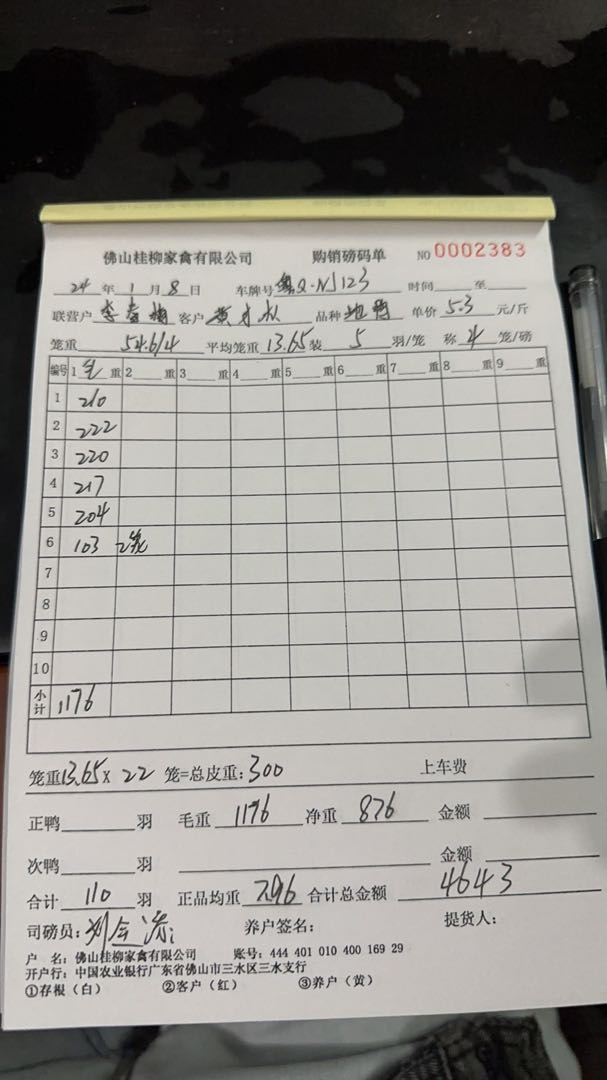 佛山桂柳家禽有限公司 购销磅码单 NO 0002383
24 年 1 月 8 日 车牌号 粤Q·NJ123 时间 至
联营户 李 客户 黄 品种 单价 5.3 元/斤
笼重 54.6/4 平均笼重 13.65 装 5 羽/笼 称 4 笼/磅
编号 1 毛 重 2 重 3 重 4 重 5 重 6 重 7 重 8 重 9 重
1 210
2 222
3 220
4 217
5 204
6 103 2笼
7
8
9
10
小计 1176
笼重 13.65 X 22 笼=总皮重: 300 上车费
正鸭 羽 毛重 1176 净重 876 金额
次鸭 羽 金额
合计 110 羽 正品均重 7.96 合计总金额 4643
司磅员: 刘 养户签名: 提货人:
户 名: 佛山桂柳家禽有限公司 账号: 444 401 010 400 169 29
开户行: 中国农业银行广东省佛山市三水区三水支行
①存根（白） ②客户（红） ③养户（黄）